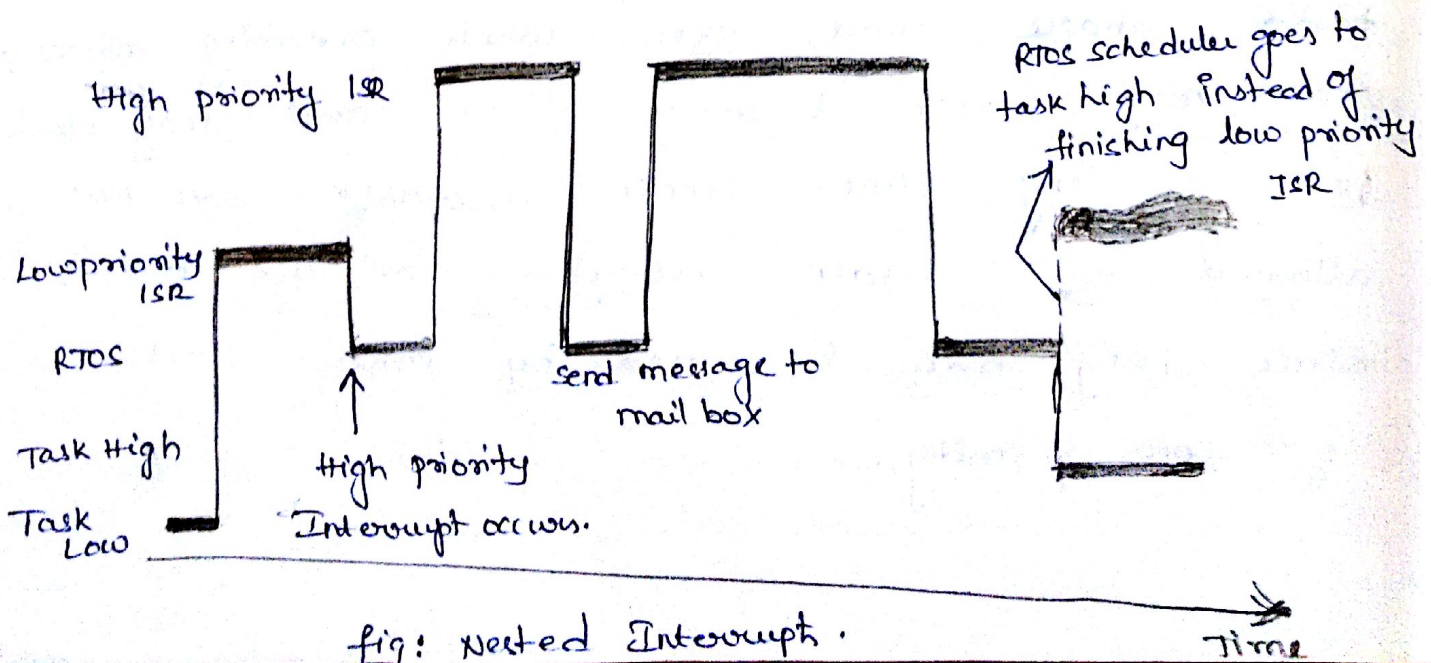 High priority ISR
RTOS scheduler goes to
task high instead of
finishing low priority
ISR
Low priority
ISR
RTOS
send message to
mail box
Task High
High priority
Interrupt occurs.
Task
Low
fig: Nested Interrupt.
Time